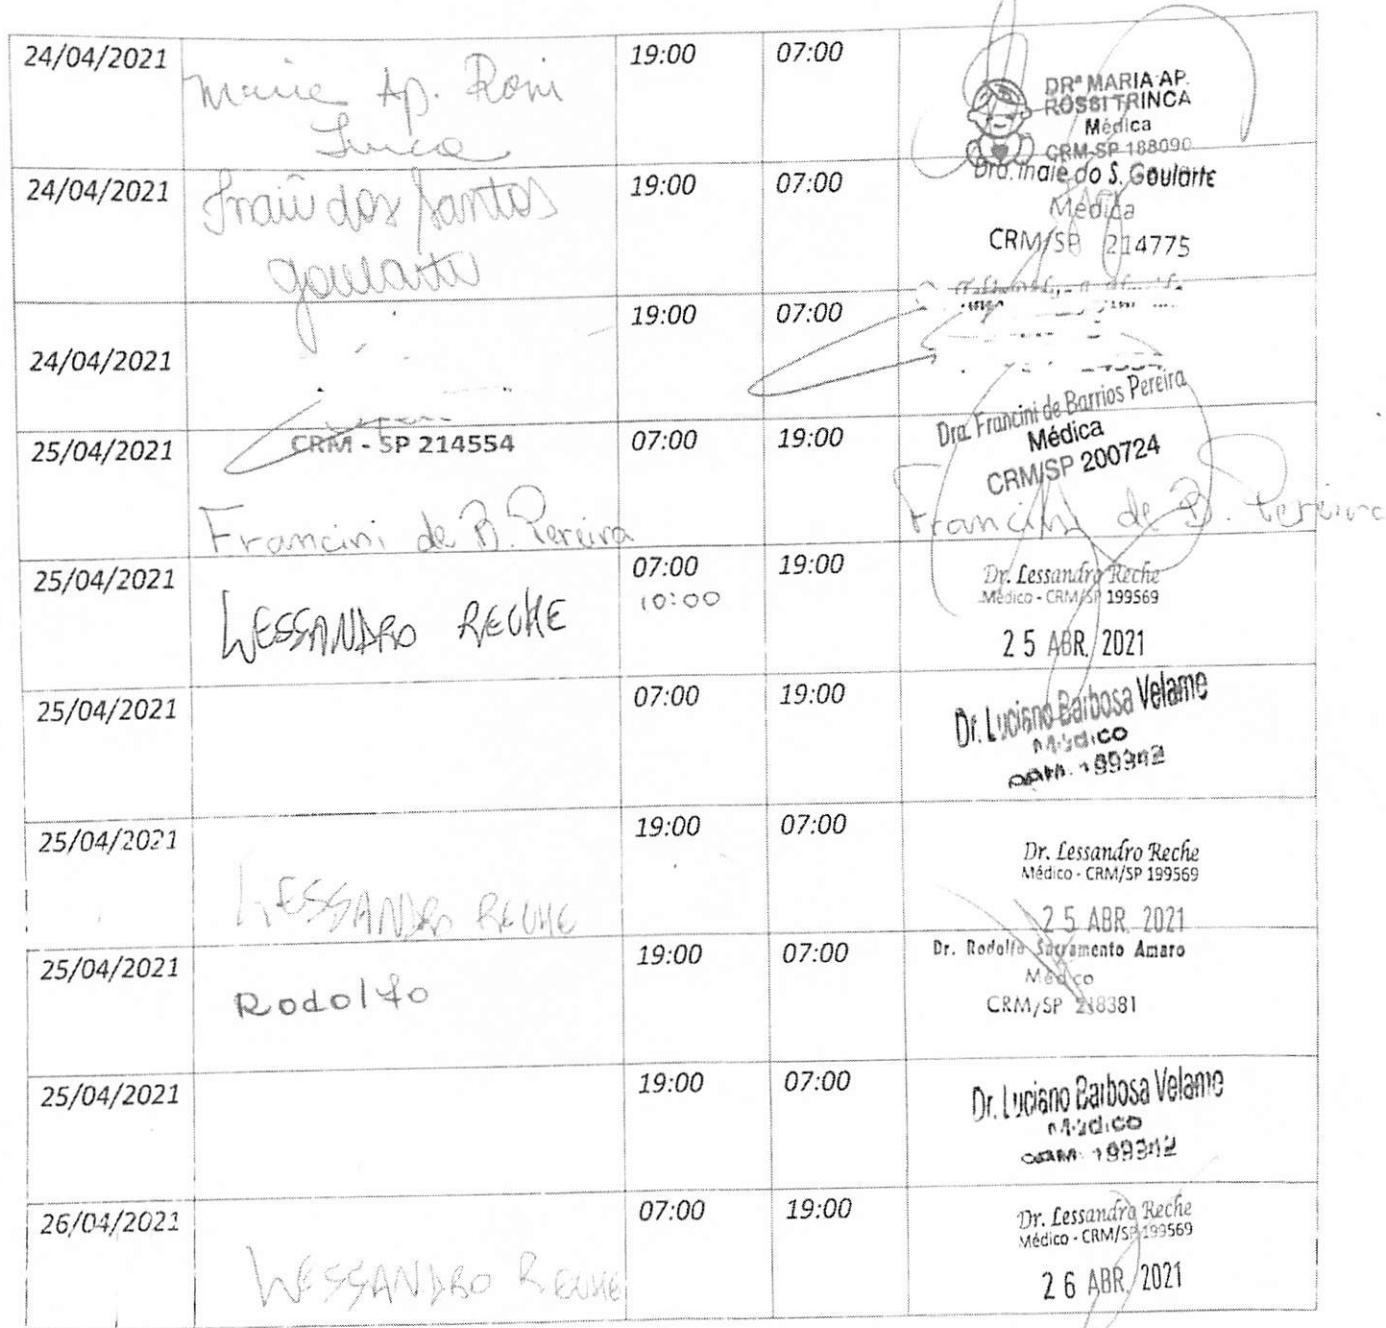 24/04/2021 Maria Ap. Rossi 19:00 07:00
Trinca
DRª MARIA AP.
ROSSI TRINCA
Médica
CRM-SP 188090
24/04/2021 dos Santos 19:00 07:00
Goularte
Dra. S. Goularte
Médica
CRM/SP 214775
24/04/2021 19:00 07:00
CRM - SP 214554
25/04/2021 07:00 19:00
Francini de B. Pereira
Dra. Francini de Barrios Pereira
Médica
CRM/SP 200724
Francini de B. Pereira
25/04/2021 LESSANDRO RECHE 07:00 19:00
10:00
Dr. Lessandro Reche
Médico - CRM/SP 199569
25 ABR. 2021
25/04/2021 07:00 19:00
Dr. Luciano Barbosa Velame
Médico
25/04/2021 LESSANDRO RECHE 19:00 07:00
Dr. Lessandro Reche
Médico - CRM/SP 199569
25 ABR. 2021
25/04/2021 Rodolfo 19:00 07:00
Dr. Rodolfo Sacramento Amaro
Médico
CRM/SP 218381
25/04/2021 19:00 07:00
Dr. Luciano Barbosa Velame
Médico
26/04/2021 LESSANDRO RECHE 07:00 19:00
Dr. Lessandro Reche
Médico - CRM/SP 199569
26 ABR. 2021